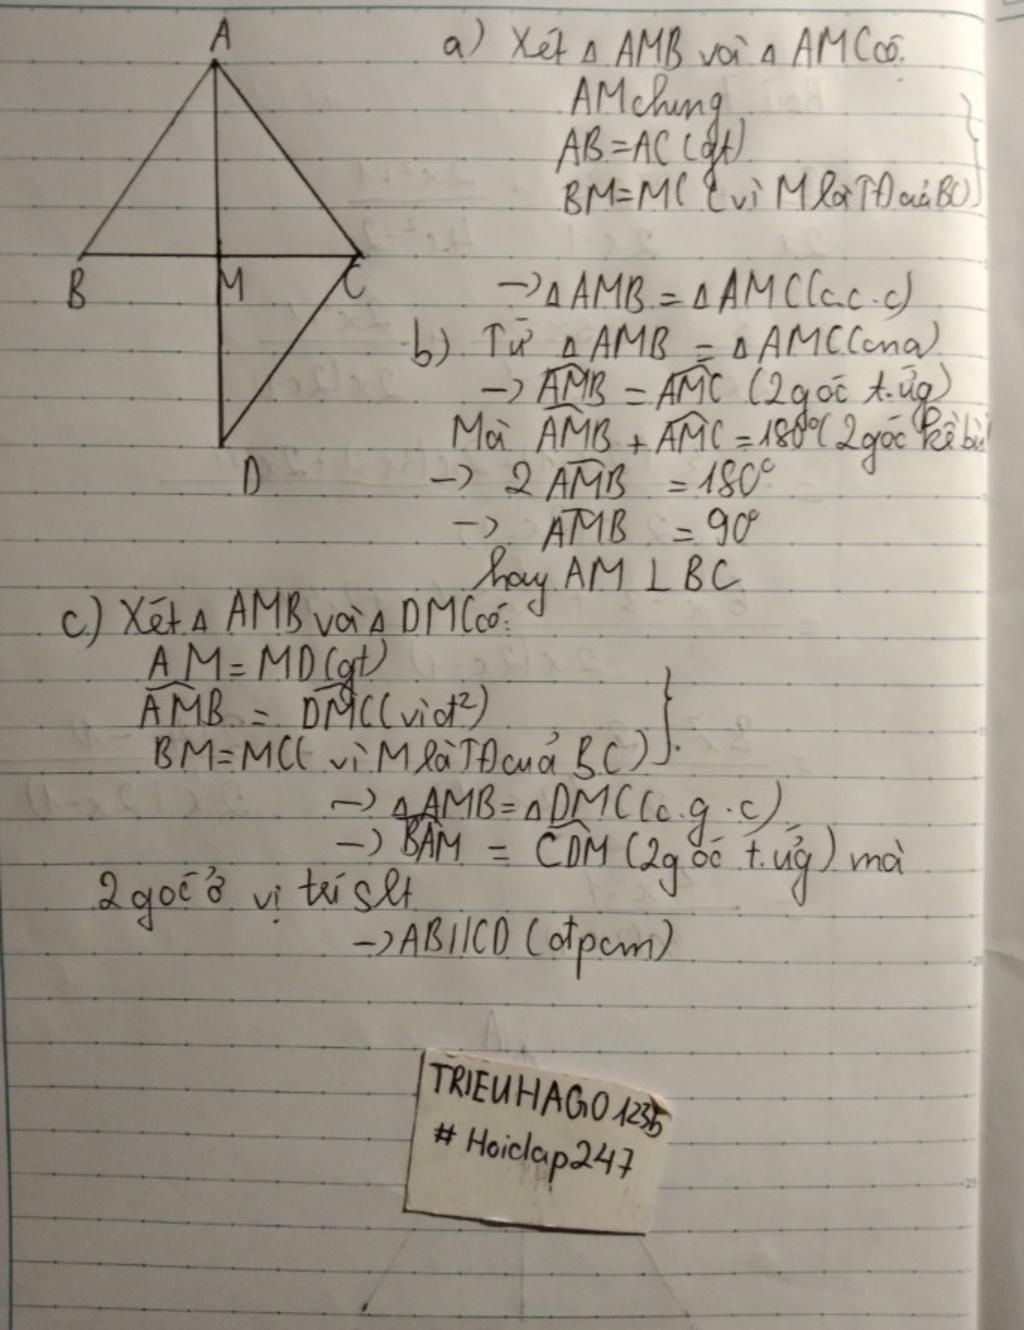 A
B
M
C
D
a) Xét Δ AMB và Δ AMC có.
AM chung
AB = AC (gt)
BM = MC (vì M là TĐ của BC)
→ Δ AMB = Δ AMC (c.c.c)
b) Từ Δ AMB = Δ AMC (cma)
→ AMB = AMC (2 góc t.ứg)
Mà AMB + AMC = 180° (2 góc kề bù)
→ 2 AMB = 180°
→ AMB = 90°
hay AM ⊥ BC
c.) Xét Δ AMB và Δ DMC có:
AM = MD (gt)
AMB = DMC (vì đ²)
BM = MC ( vì M là TĐ của BC)
→ Δ AMB = Δ DMC (c.g.c)
→ BAM = CDM (2 góc t.ứg) mà
2 góc ở vị trí slt
→ AB // CD (đpcm)
TRIEUHAGO1235
# Hoidap247